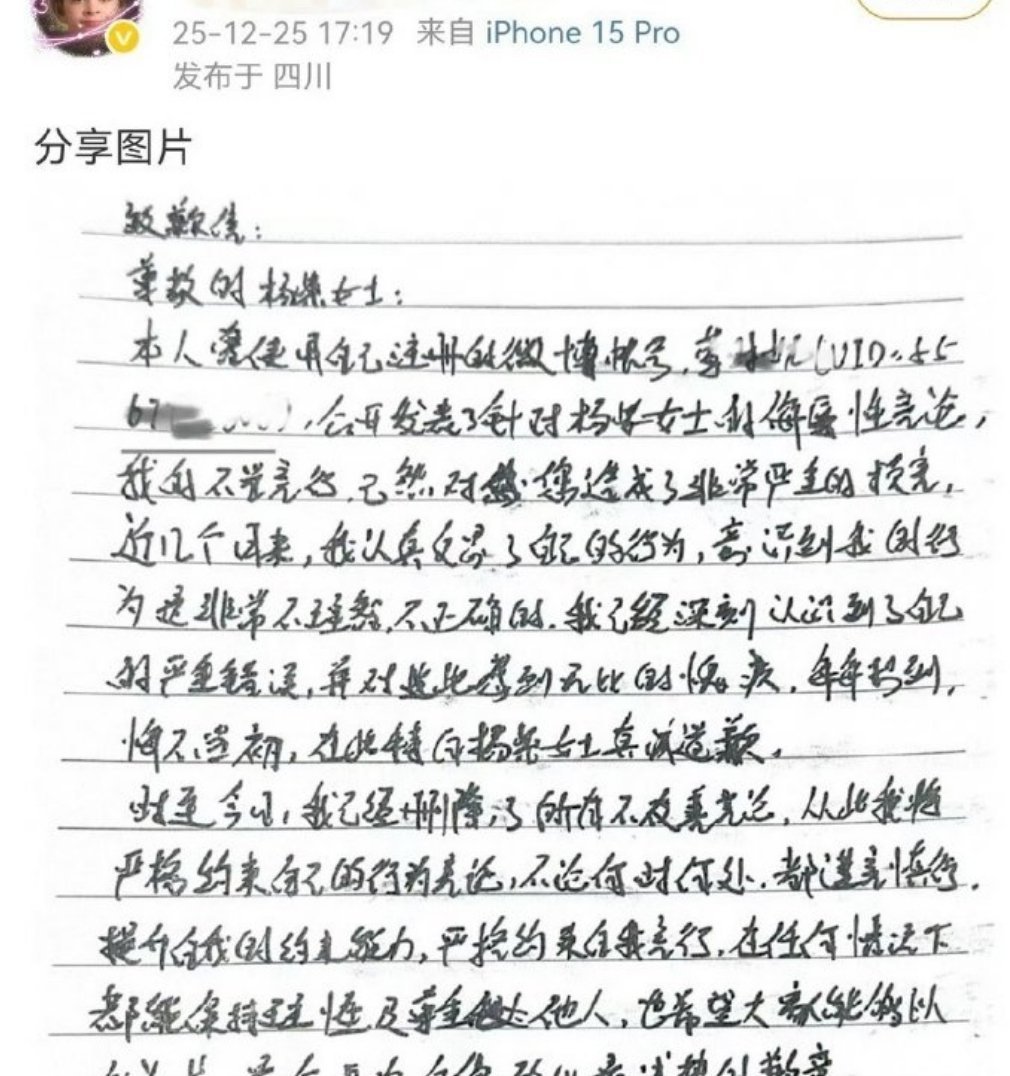 25-12-25 17:19 来自 iPhone 15 Pro
发布于 四川
分享图片
致歉信:
尊敬的杨紫女士:
本人曾使用自己注册的微博帐号, (UID:55
67 ), 公开发表了针对杨紫女士的侮辱性言论,
我的不当言行,已然对您造成了非常严重的损害,
近几个月来,我认真反思了自己的行为,意识到我的行
为是非常不理智、不正确的,我已经深刻认识到了自己
的严重错误,并对此感到无比的愧疚,每每想到,
悔不当初,在此特向杨紫女士真诚道歉。
时至今日,我已经删除了所有不友善言论,从此我将
严格约束自己的行为言论,不论何时何处,都谨言慎行,
提升自我的约束能力,严格约束自我言行,在任何情况下
都能保持理性及尊重他人,也希望大家能够以